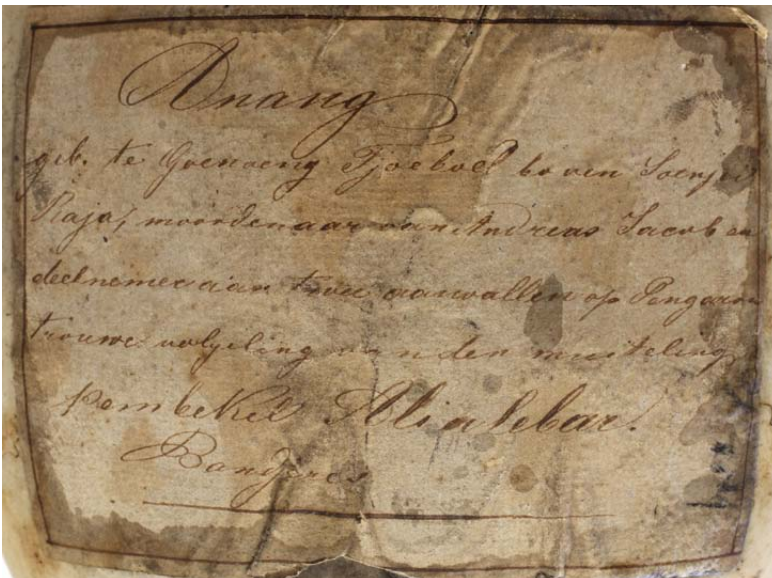 Anang
geb. te Goenoeng Tjoeboel boven Soenjei
Raja, moordenaar van Andreas Jacob en
deelnemer aan twee aanvallen op Pengaron
trouwe volgeling van den muiteling
Pembekel Aliakbar.
Bandjer